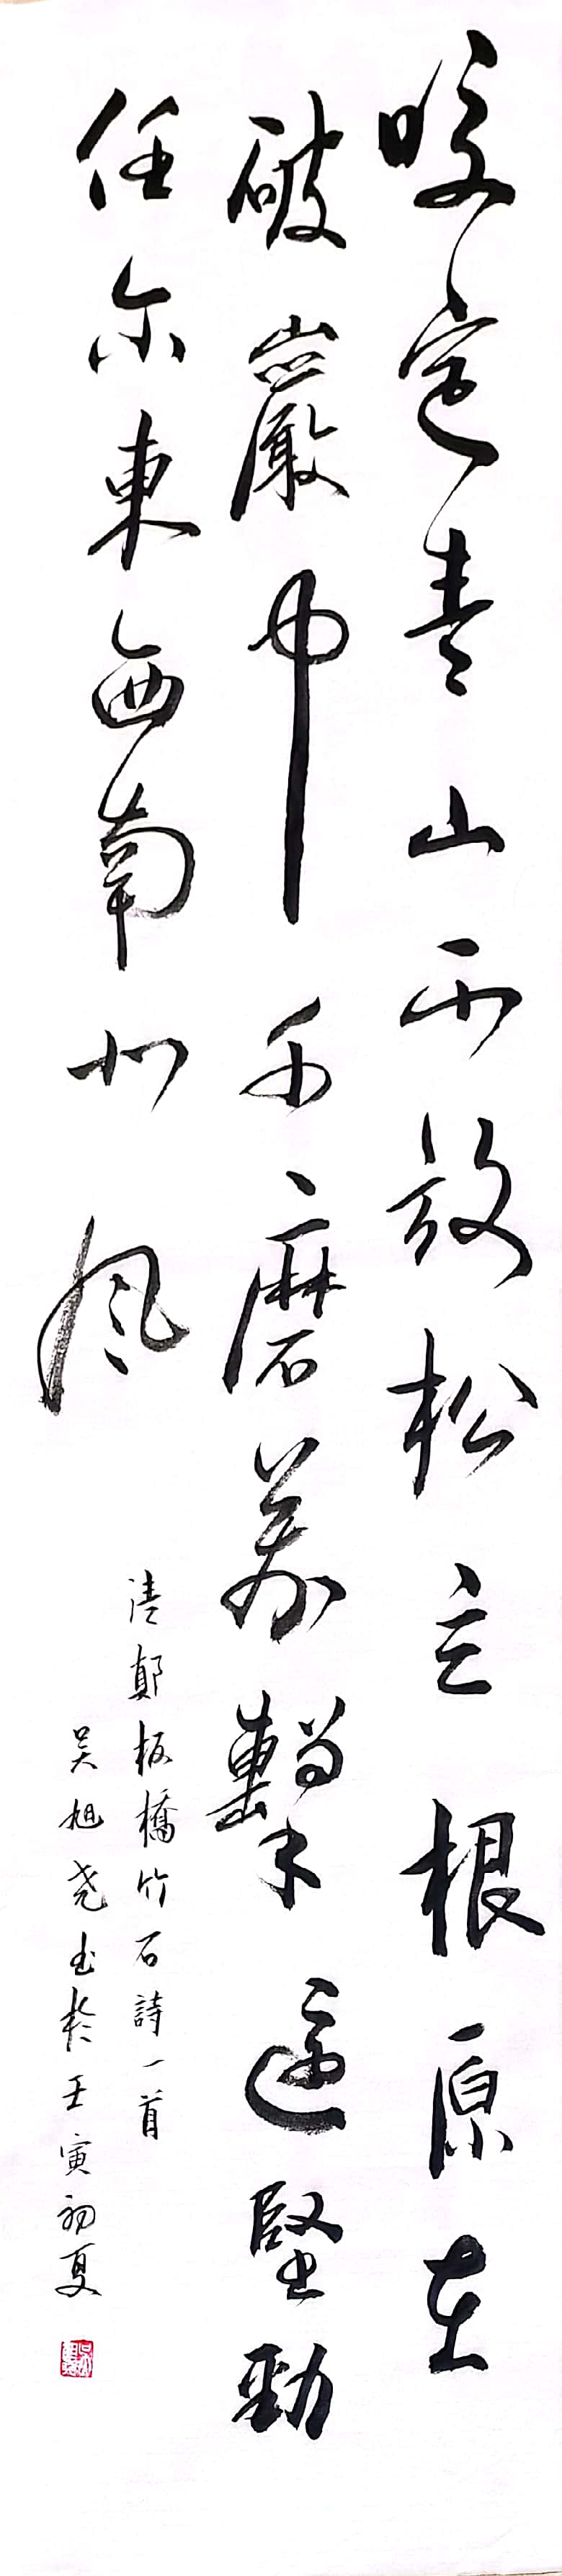 咬定青山不放松立根原在
破巖中千磨萬擊還堅勁
任尔東西南北风
清鄭板橋竹石詩一首
吴旭尧书於壬寅初夏